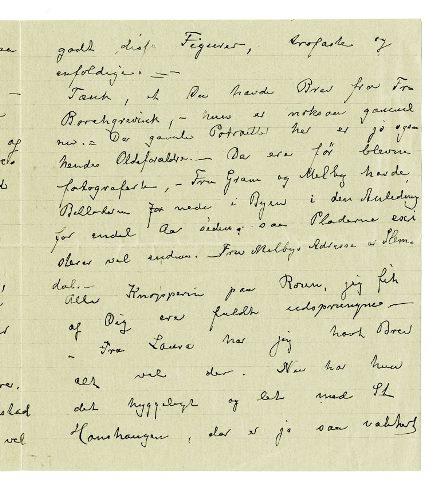 godt disse Figurer, trofaste og
enfoldige. —
Tænk, at Du havde Brev fra Fru
Borchgrevink, – hun er nokså gammel
nu. – De gamle Potraitter her er jo ogsaa
hendes Oldeforældre. – De ere før blevne
fotograferte, – Fru Gram og Melby havde
nede i Byen i den Anledning
for endel Aar siden; saa Pladerne exi-
sterer vel endnu. Fru Melbys Adresse er Slem-
dal. –
Alle Knopperne paa Rosen, jeg fik
af Dig ere fuldt udsprungne –
– Fra Laura har jeg havt Brev
alt vel der. Nu har hun
det hyggeligt og let med St
Hanshaugen, der er jo saa vakkert
aa
–
og
d
r
re.
stad
vel